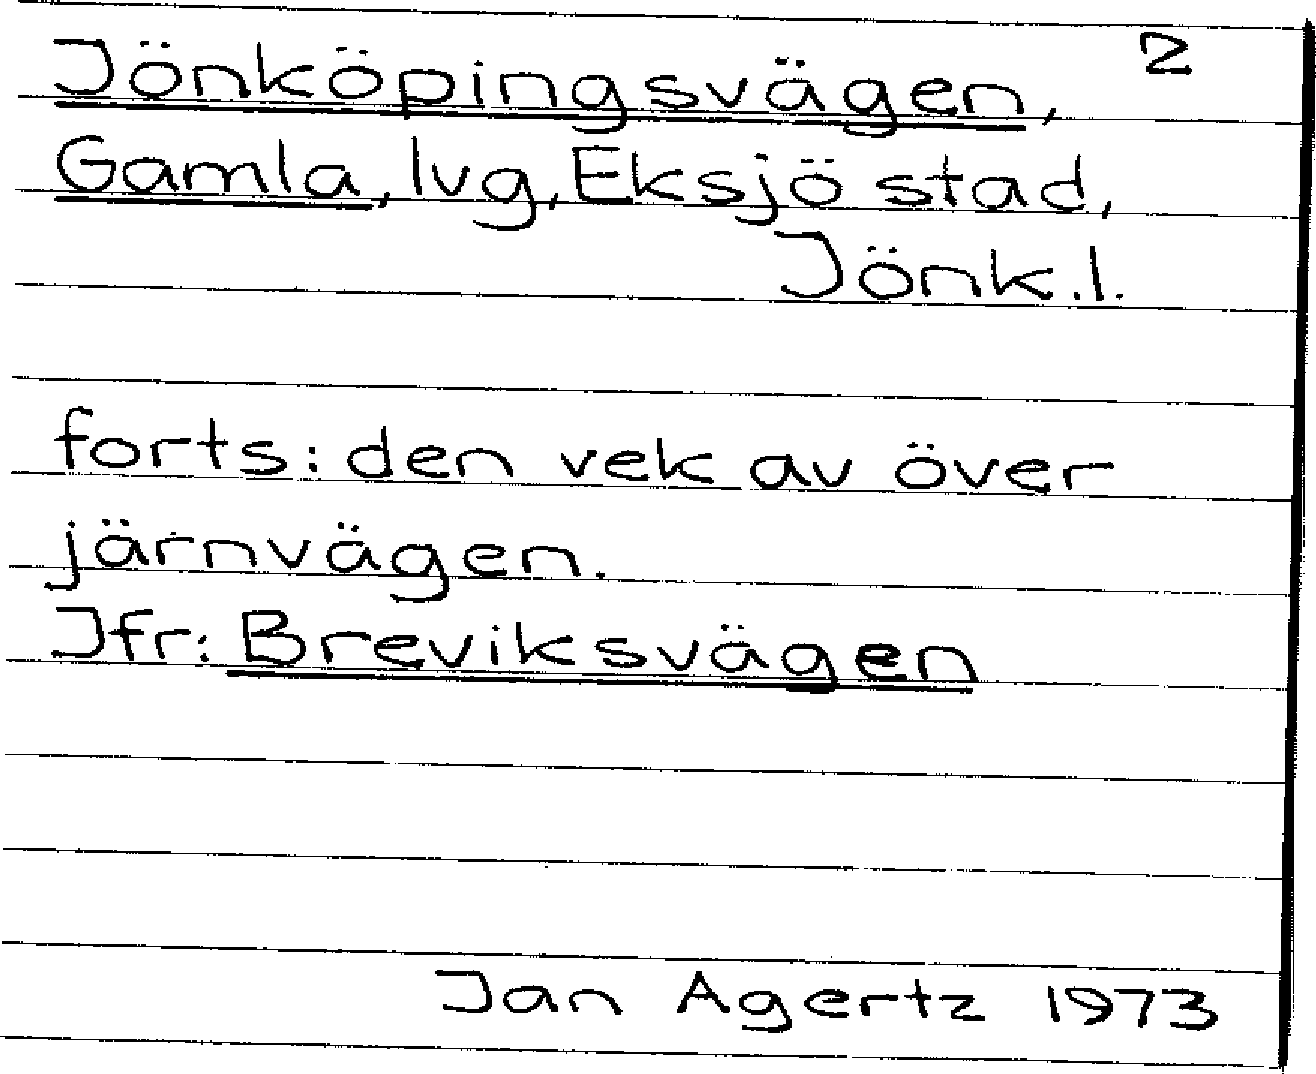 2
Jönköpingsvägen,
Gamla, lvg, Eksjö stad,
Jönk.l.
forts: den vek av över
järnvägen.
Jfr: Breviksvägen
Jan Agertz 1973